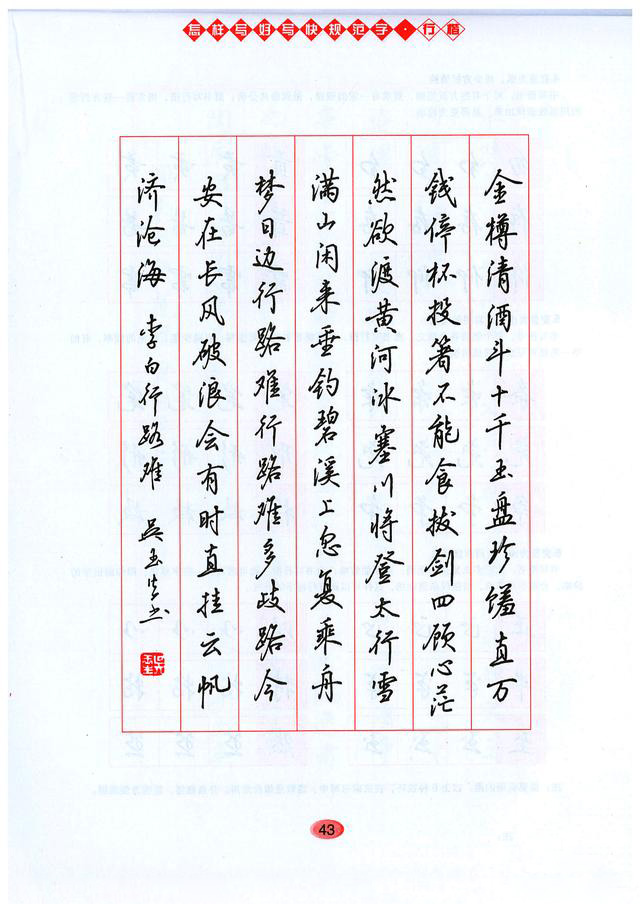 怎样写好写快规范字·行楷
金樽清酒斗十千玉盘珍馐直万
钱停杯投箸不能食拔剑四顾心茫
然欲渡黄河冰塞川将登太行雪
满山闲来垂钓碧溪上忽复乘舟
梦日边行路难行路难多歧路今
安在长风破浪会有时直挂云帆
济沧海 李白行路难 吴玉生书
43